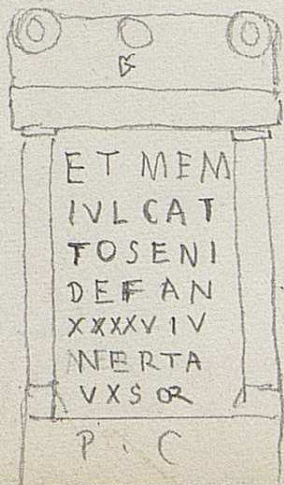 ET MEM
IVL CAT
TOSENI
DEFAN
XXXXVIV
NERTA
VXSOR
P . C